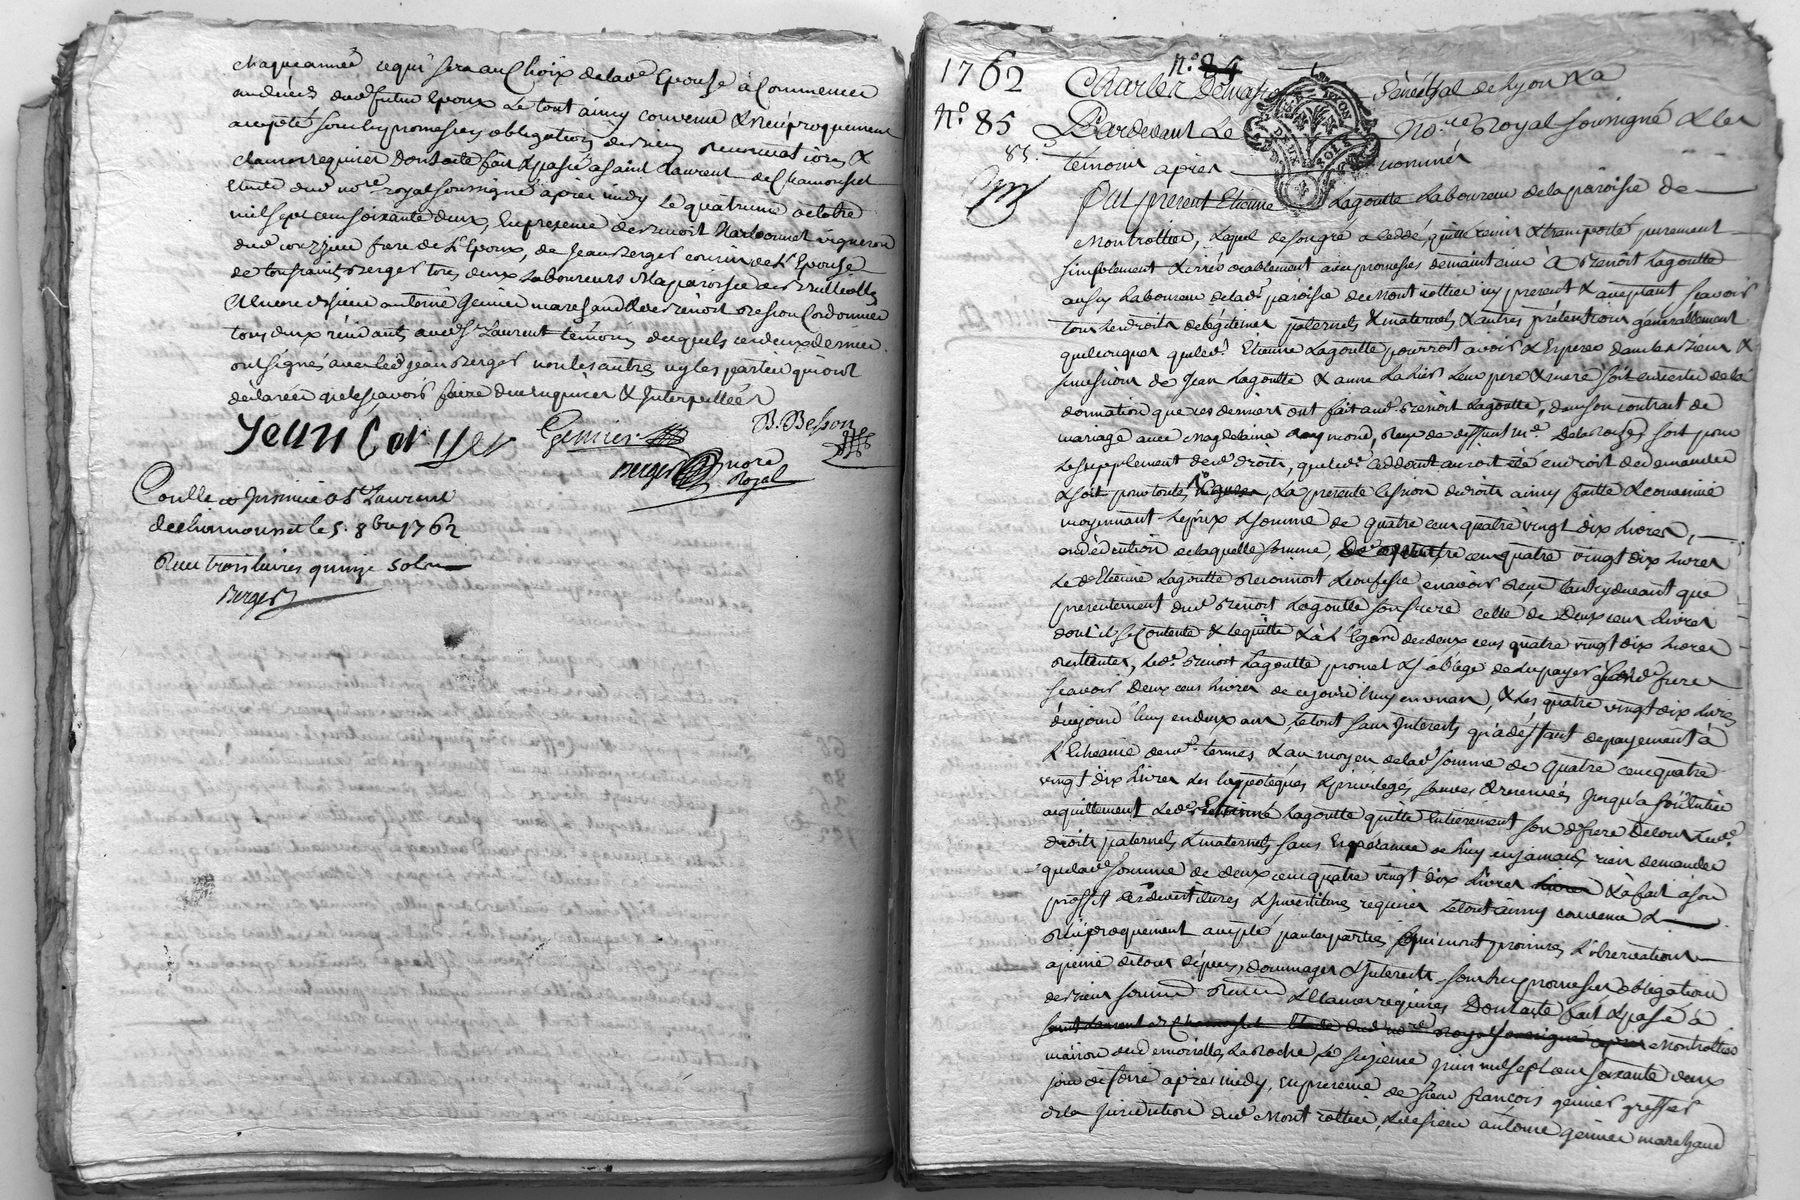 chaque année ce qui sera au Choix de lad.e Epouse à Commencer
au décès dud. futur Epoux Le tout ainsy convenu & réciproquement
accepté sous les promesses obligations de biens renonciations &
clauses requises Dont acte fait & passé à Saint Laurent de Chamousset
Etude dud. no.re royal soussigné après midy Le quatrieme octobre
mil sept cens soixante deux, En presence de Benoit Narbonnet vigneron
dud. courzieu frere de L'Epoux, de Jean Berger cousin de L'Epouse
de toussaint Berger tous deux Laboureurs de la paroisse de Brullioles
& encore de sieur antoine Genier marchand & de Benoit Besson Cordonnier
tous deux résidants aud. St Laurent témoins desquels ces deux derniers
ont signés avec led. Jean Berger non les autres ny les parties qui ont
déclarées ne le scavoir faire de ce enquises & Interpellées
Genier B. Besson
Berger no.re
Royal
Conlle et Insinué a St Laurent
de chamousset le 5. 8bre 1762
Reçu trois livres quinze sols
Berger
N.o 84
1762 Charles Demasso Sénéchal de Lyon
N.o 85 Pardevant Le No.re Royal soussigné & les
85. témoins après nommés
fut present Etienne Lagoutte Laboureur de la paroisse de
Montrottier, Lequel de son gré a cedé, quitté remis & transporté purement
simplement & irrévocablement avec promesses de maintenir à Benoit Lagoutte
aussy Laboureur de lad. paroisse de Montrottier icy present & acceptant, scavoir
tous les droits de légitimes paternels & maternels & autres prétentions généralement
quelconques que led. Etienne Lagoutte pourroit avoir & Esperer dans les Biens &
successions de Jean Lagoutte & anne Leurs pere & mere soit en vertu de la
donnation que ces derniers ont fait aud. Benoit Lagoutte, dans son contrat de
mariage avec Magdelaine Raymond, Reçu de deffunt m.e Delaroche, soit pour
Le supplement desd. droits, que led. Cédant auroit été en droit de demander
& soit pour toutes, La presente Cession de droits ainsy faitte & convenue
moyennant Le prix & somme de quatre cens quatre vingt dix Livres,
en déduction de laquelle somme, de quatre cens quatre vingt dix Livres
Le d. Etienne Lagoutte Reconnoit & confesse en avoir Reçu tant cydevant que
presentement dud. Benoit Lagoutte son frere celle de Deux cens Livres
dont il se Contente & Le quitte & à L'Egard des deux cens quatre vingt dix Livres
restantes, Led. Benoit Lagoutte promet & s'oblige de les payer aud. frere
scavoir Deux cens Livres de ce jourd'huy en un an, & Les quatre vingt dix Livres
du jourd'huy en deux ans, Le tout sans Interests qu'à déffaut de payement à
L'Echeance desd. termes & au moyen de lad. somme de quatre cens quatre
vingt dix Livres Les hippotéques & privilegés sauves & reservées Jusqu'a son Entier
acquittement Led. Etienne Lagoutte quitte Entierement son d. frere De tous sesd.
droits paternels & maternels, sans Espérance de Luy en jamais rien demander
que lad. somme de deux cens quatre vingt dix Livres Livres & a fait à son
proffit Les devestitures & Investitures requises Le tout ainsy convenu &
réciproquement accepté par les parties qui en ont promises L'observation
a peine de tous dépens, dommages & Interests sous les promesses obligation
de Biens soumission renon. & Clauses requises Dont acte fait & passé à
Saint Laurent de Chamousset Etude dud. no.re Royal soussigné après Montrottier
maison des demoiselles La Roche Le sixieme Juin mil sept cens soixante deux
jour de foire après midy, En presence de Sieur françois genier greffier
de la jurisdiction dud. Montrottier, & de sieur antoine genier marchand